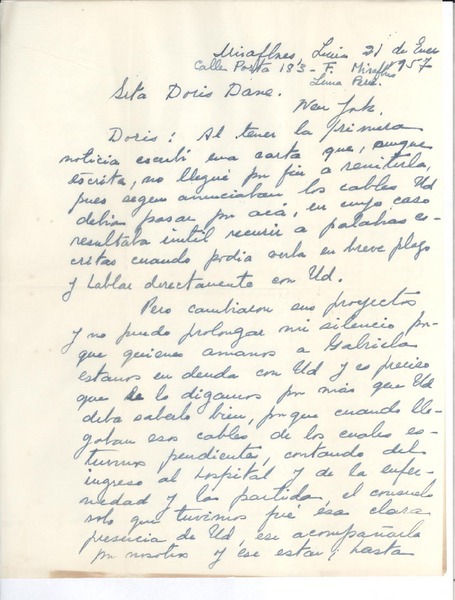 Miraflores, Lima 21 de Enero
Calle Porta 183 - F. Miraflores 957
Lima Perú.
Srta Doris Dana.
New York.
Doris: Al tener la primera
noticia escribí una carta que, aunque
escrita, no llegué por fin a remitirla,
pues según anunciaban los cables Ud
debían pasar por acá, en cuyo caso
resultaba inútil recurir a palabras es-
critas cuando podía verla en breve plazo
y hablar directamente con Ud.
Pero cambiaron sus proyectos
y no puedo prolongar mi silencio por-
que quienes amamos a Gabriela
estamos en deuda con Ud y es preciso
que lo digamos por más que Ud
deba saberlo bien, porque cuando lle-
gaban esos cables, de los cuales es-
tuvimos pendientes, contando del
ingreso al hospital y de la enfer-
medad y la partida, el consuelo
solo que tuvimos fué esa clara
presencia de Ud, ese acompañarla
por nosotros y ese estar, hasta